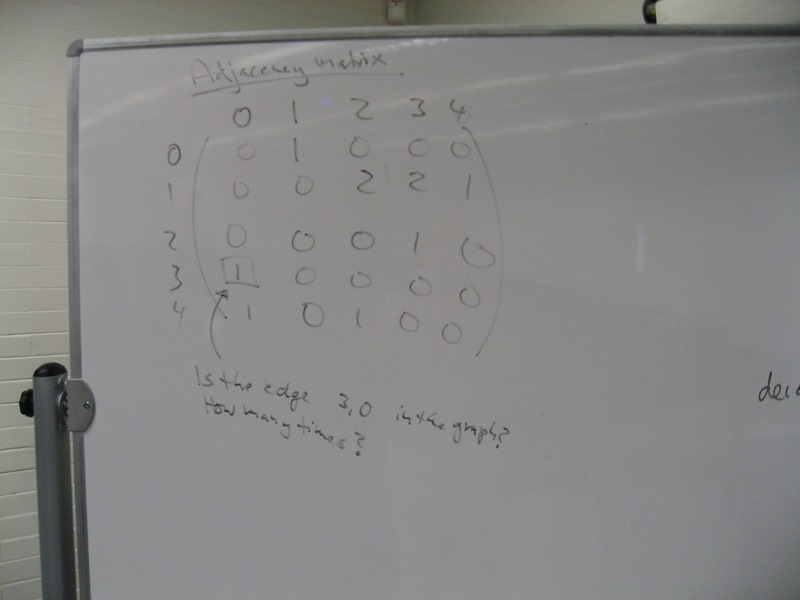 Adjacency matrix
0 1 2 3 4
0 0 1 0 0 0
1 0 0 2 2 1
2 0 0 0 1 0
3 1 0 0 0 0
4 1 0 1 0 0
Is the edge 3,0 in the graph?
How many times?